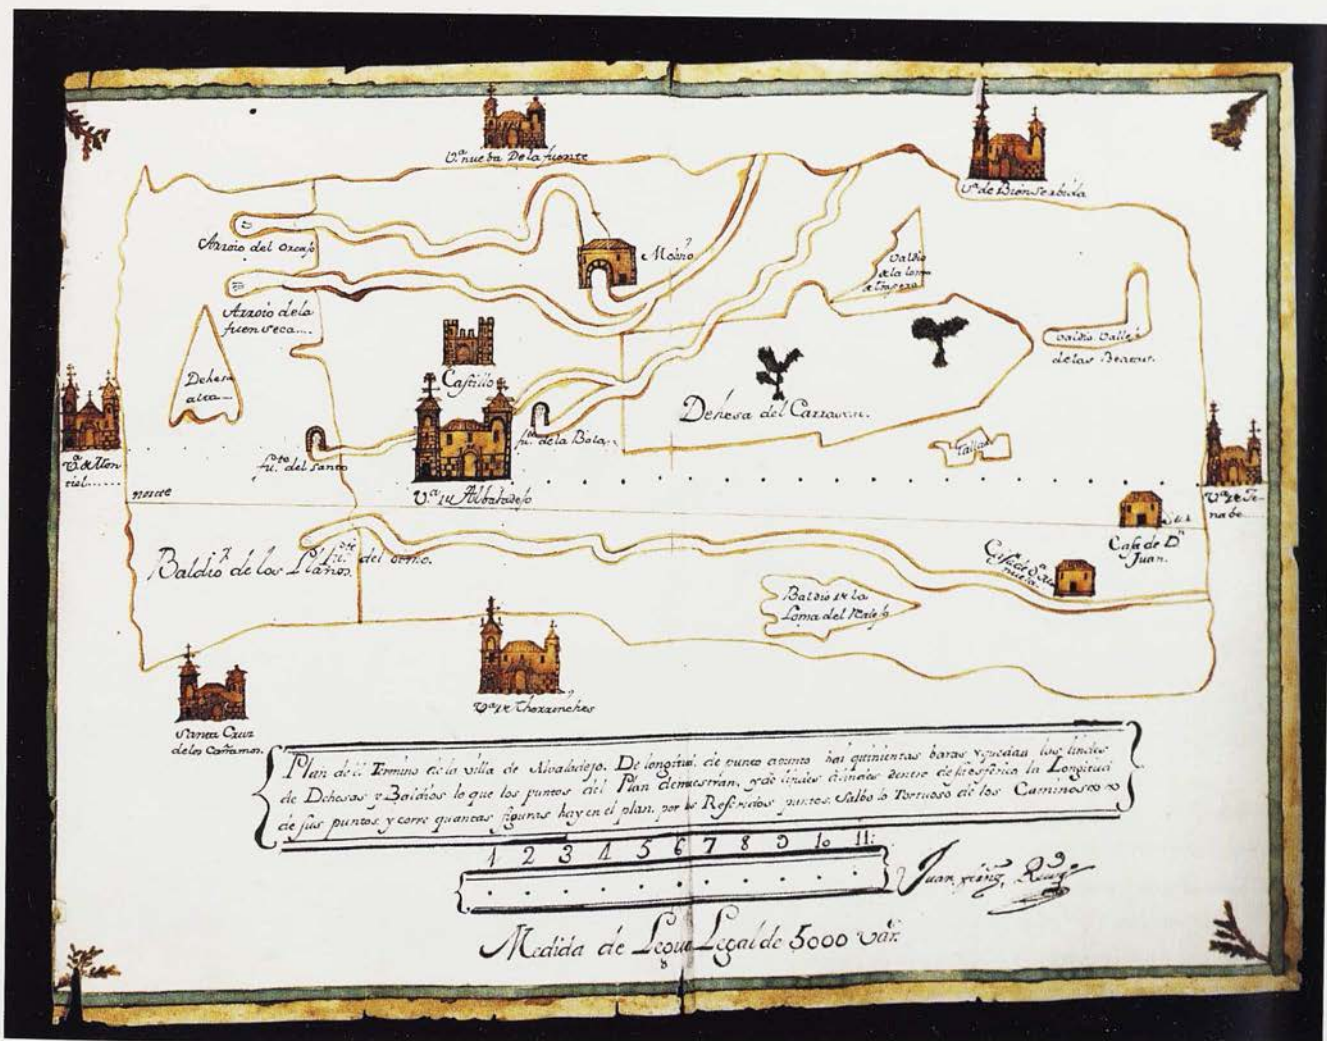 V.ª nueba De la fuente
V.ª de Bienserbida
Arroio del Orcajo
Molino
Valdio
de la loma
Arroio de la
fuenseca....
Castillo
Dehesa
alta....
Valdio Valle
de las Beatas.
Dehesa del Carrascal.
fu.te de la Bola...
fu.te del Santo
Tallas
V.ª de Mon
tiel......
V.ª de Albaladejo
V.ª de Je-
nabe
norte
Sur
Casa de D.n
Juan.
Baldio de los Llanos.
fu.te del olmo.
Baldio de la
Loma del
V.ª de Thorrenches
Santa Cruz
de los Cañamos.
Plan del Termino de la villa de Alvaladejo. De longitud, de punto apunto hai quinientas baras y quedan los lindes
de Dehesas y Baldios lo que los puntos del Plan demuestran, y de lindes alindes dentro de su esferica la Longitud
de sus puntos, y corre quantas figuras hay en el plan, por los Referidos puntos, Salbo lo Tortuoso de los Caminos
1 2 3 4 5 6 7 8 9 10 11:
Juan
Medida de Legua Legal de 5000 var.s